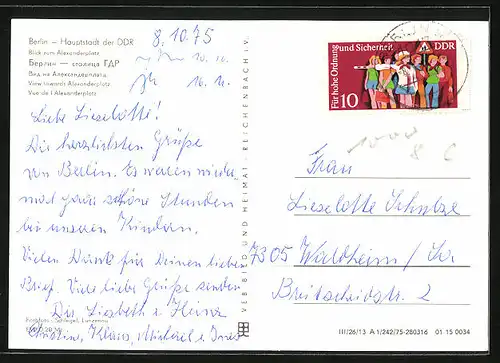 Berlin – Hauptstadt der DDR
Blick zum Alexanderplatz
Берлин — столица ГДР
Вид на Александерплатц
View towards Alexanderplatz
Vue de l'Alexanderplatz
8.10.75
10. 10.
10. 11.
Liebe Lieselotte!
Die herzlichsten Grüße
von Berlin. Es waren wieder
mal ganz schöne Stunden
bei unseren Kindern.
Vielen Dank für Deinen lieben
Brief. Viele liebe Grüße senden
Dir Liesbeth u. Heinz
Christine, Klaus, Michael u. Ines
VEB BILD UND HEIMAT · REICHENBACH i. V.
Für hohe Ordnung und Sicherheit
DDR
10
Frau
Lieselotte Schulze
7305 Waldheim / Sa
Breitscheidstr. 2
III/26/13 A 1/242/75-280316 01 15 0034